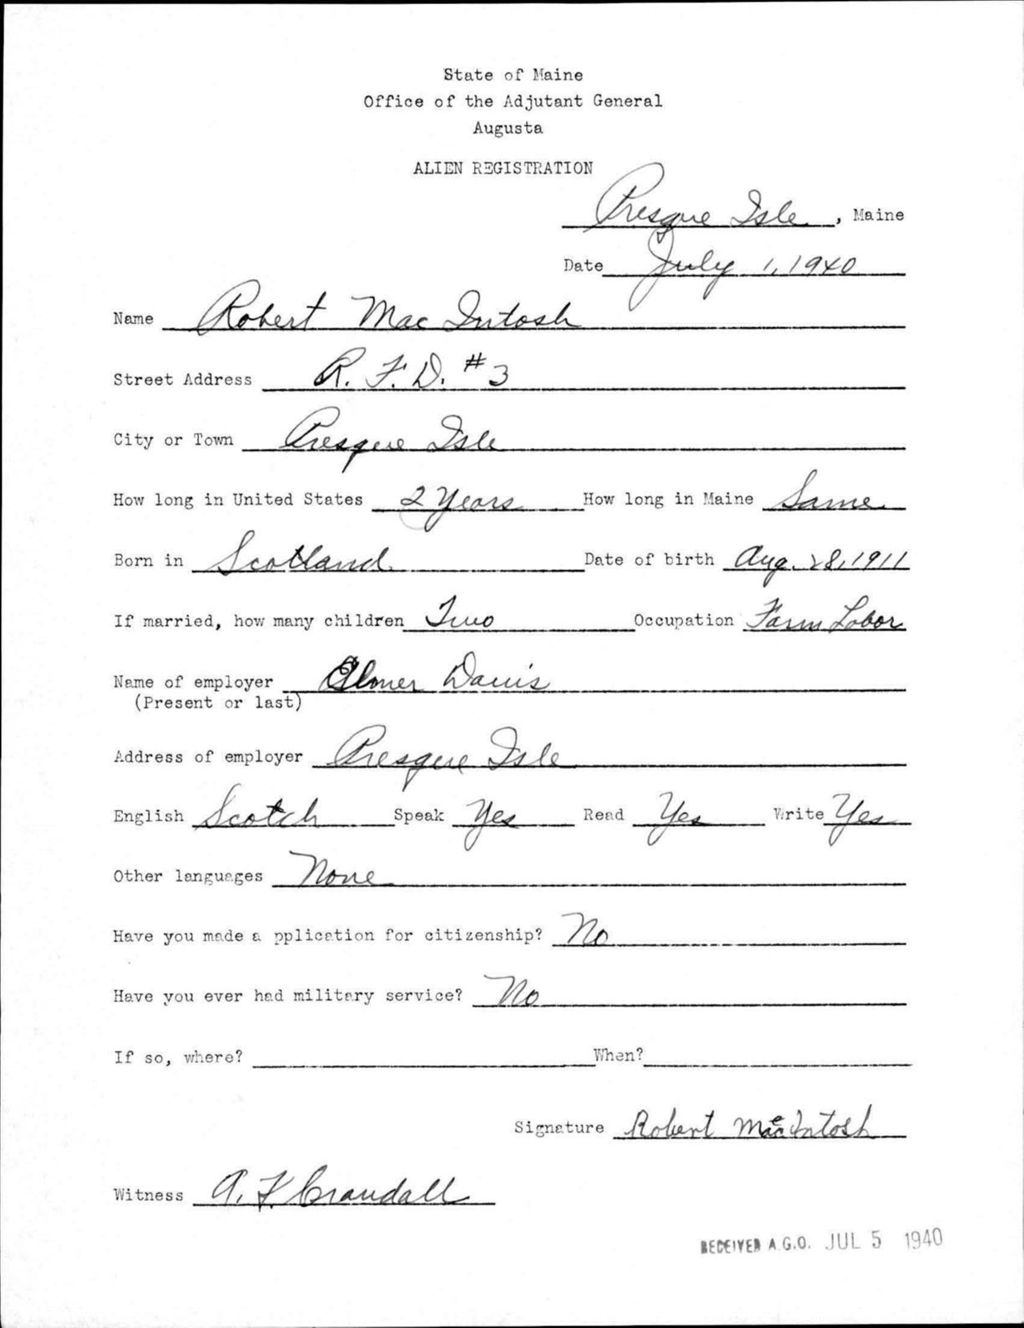 State of Maine
Office of the Adjutant General
Augusta
ALIEN REGISTRATION
Presque Isle, Maine
Date July 1, 1940
Name Robert Mac Intosh
Street Address R. F. D. #3
City or Town Presque Isle
How long in United States 2 Years How long in Maine Same
Born in Scotland Date of birth Aug. 28, 1911
If married, how many children Two Occupation Farm Labor
Name of employer Elmer Davis
(Present or last)
Address of employer Presque Isle
English Scotch Speak Yes Read Yes Write Yes
Other languages None
Have you made a pplication for citizenship? No
Have you ever had military service? No
If so, where? When?
Signature Robert MacIntosh
Witness A. F. Crandall
RECEIVED A.G.O. JUL 5 1940